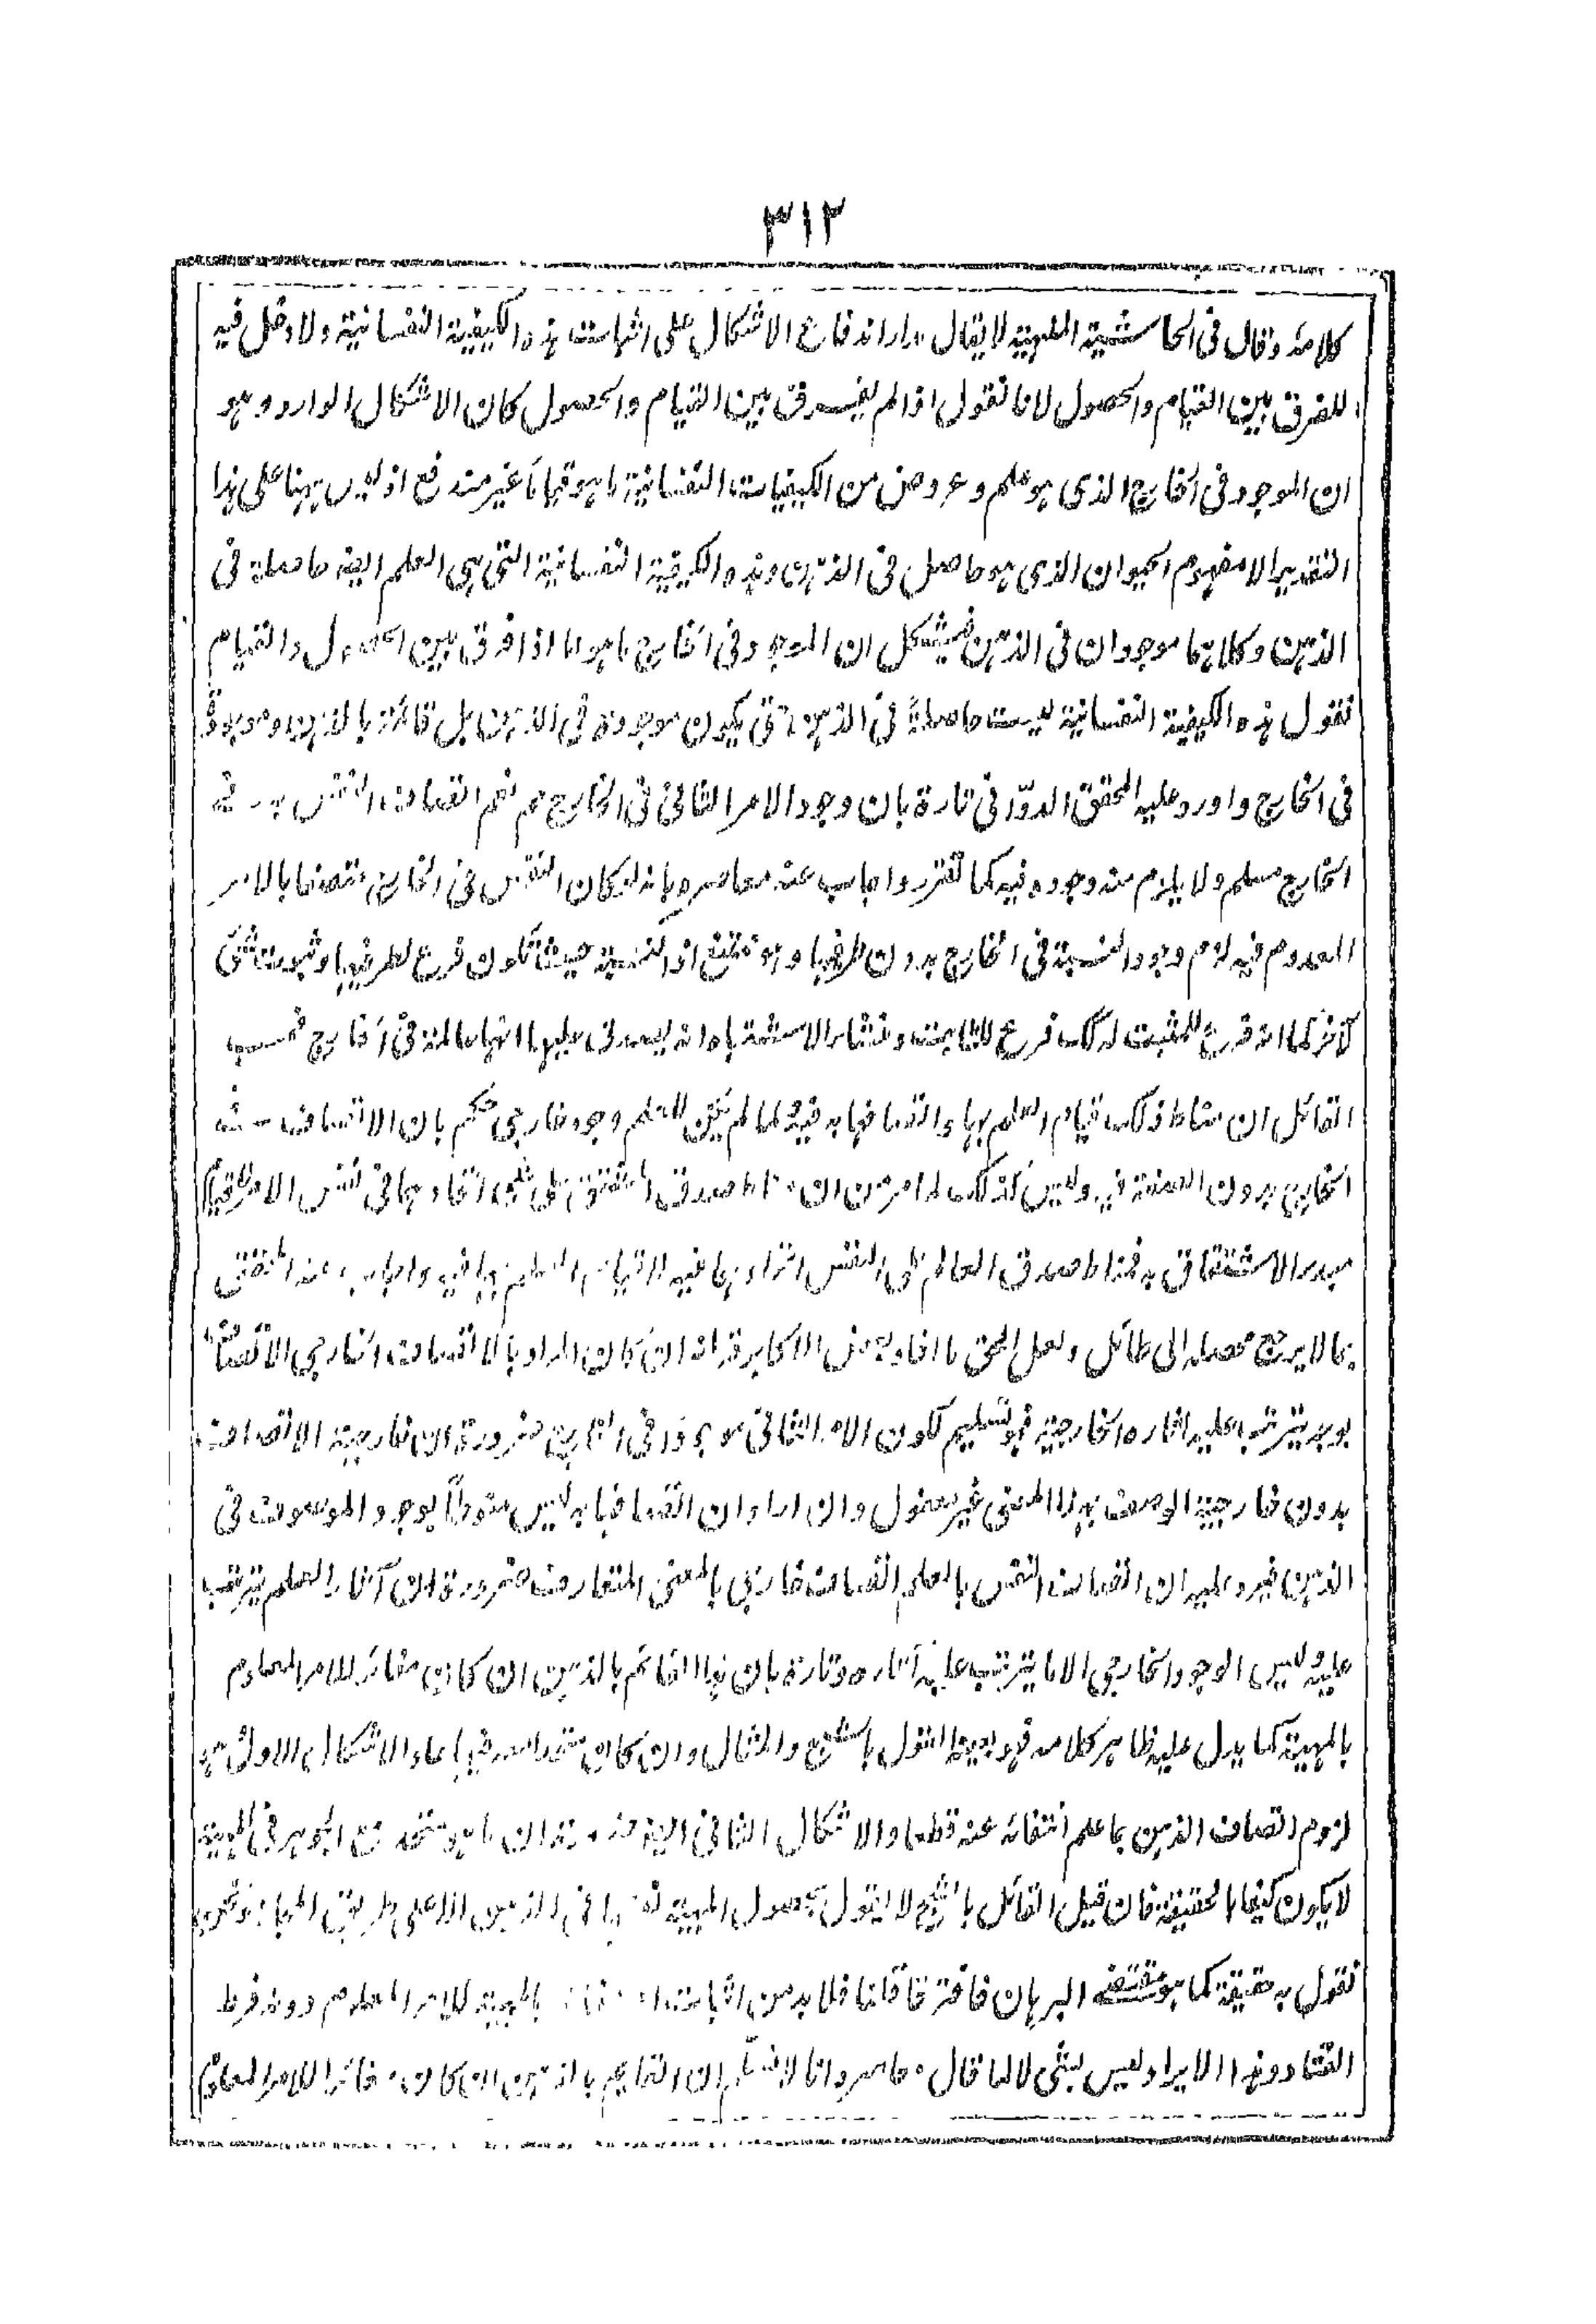 ٣١٢
كلامه وقال في الحاشية المنهية لا يقال مدار اندفاع الاشكال على اثبات هذه الكيفية النفسانية ولا دخل فيه
للفرق بين القيام والحصول لانا نقول اذا لم يفرق بين القيام والحصول كان الاشكال الوارد وهو
ان الموجود في الخارج الذي هو علم وعرض من الكيفيات النفسانية ما هو قيامًا غير مندفع اذ ليس ههنا على هذا
التقدير الا مفهوم الحيوان الذي هو حاصل في الذهن وهذه الكيفية النفسانية التي هي العلم ايضه حاصلة في
الذهن وكلاهما موجودان في الذهن فيشكل ان الموجود في الخارج ما هو اما اذا فرق بين الحصول والقيام
نقول هذه الكيفية النفسانية ليست حاصلةً في الذهن حتى يكون موجودة في الذهن بل قائمة بالذهن وموجودةٌ
في الخارج واورد عليه المحقق الدوّاني تارة بان وجود الامر الثاني في الخارج مم نعم اتصاف النفس به في
الخارج مسلم ولا يلزم منه وجوده فيه كما تقرر واجاب عنه معاصره بانه لو كان النفس في الخارج متصفا بالامر
المعدوم فيه لزم وجود النسبة في الخارج بدون طرفيها وهو ممتنع اذ النسبة حيث تكون فرع لطرفيها وثبوت شئ
لآخر كما انه فرع للمثبت له كك فرع للثابت ومنشأ الاشتباه انه يصدق عليها انها عالمة في الخارج فحسب
القائل ان مناط ذلك قيام العلم بها واتصافها به فيه فلما لم يكن للعلم وجود خارجي حكم بان الاتصاف في
الخارج بدون الصفة فيه وليس كذلك لما مر من ان مناط صدق المشتق على شئ اتحادهما في نفس الامر لا قيام
مبدء الاشتقاق به فمناط صدق العالم على النفس اتحادهما فيه لا قيام العلم بها فيه واجاب عنه المحقق
بما لا يرجع محصله الى طائل ولعل الحق ما افاده بعض الاكابر قد انه ان كان المراد بالاتصاف الخارجي الاتصاف
بوجه يترتب عليه آثاره الخارجية فهو تسليم لكون الامر الثاني موجودًا في الخارج ضرورة ان خارجية الاتصاف
بدون خارجية الوصف بهذا المعنى غير معقول وان اراد ان اتصافها به ليس منوطًا بوجود الموصوف في
الذهن فيرد عليه ان اتصاف النفس بالعلم اتصاف خارجي بالمعنى المتعارف ضرورة ان آثار العلم يترتب
عليه وليس الوجود الخارجي الا ما يترتب عليه آثاره وتارة بان هذا القائم بالذهن ان كان مغائر للامر المعلوم
بالمهية كما يدل عليه ظاهر كلامه فهو بعينه القول بالشبح والمثال وان كان متحدا معه فيها عاد الاشكال الاول من
لزوم اتصاف الذهن بما علم انتفائه عنه قطعا والاشكال الثاني ايضه ضرورة ان ما هو متحد مع الجوهر في المهية
لا يكون كيفا بالحقيقة فان قيل القائل بالشبح لا يقول بحصول المهية نفسها في الذهن الا على طريق المجاز ونحن
نقول به حقيقة كما هو مقتضى البرهان فافترقا قلنا فلا بد من اثبات بالمهية للامر المعلوم دونه خرط
القتاد وهذا الايراد ليس بشئ لا لما قال معاصره انا لا نسلم ان القائم بالذهن ان كان مغائرا للامر المعلوم